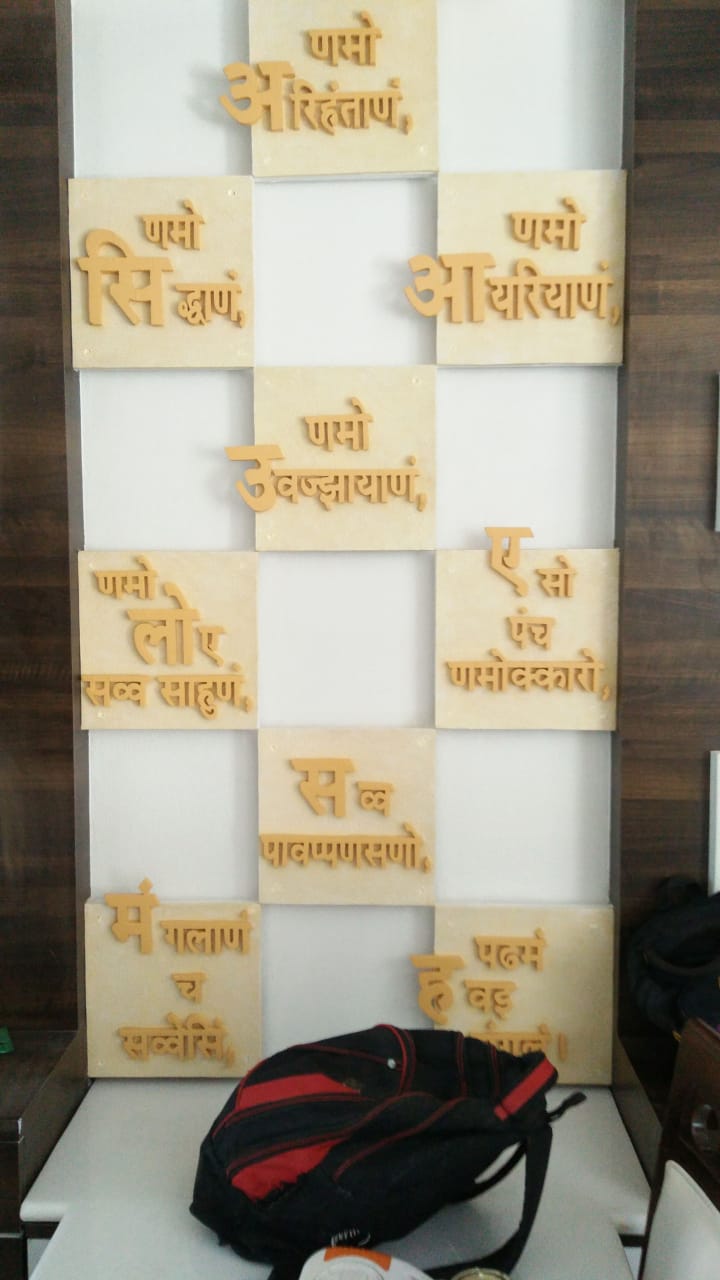 णमो
अरिहंताणं,
णमो
सिद्धाणं,
णमो
आयरियाणं,
णमो
उवज्झायाणं,
णमो
लोए
सव्व साहुणं,
ए सो
पंच
णमोक्कारो,
स व्व
पावप्पणसणो,
मं गलाणं
च
सव्वेसिं,
पढमं
ह वइ